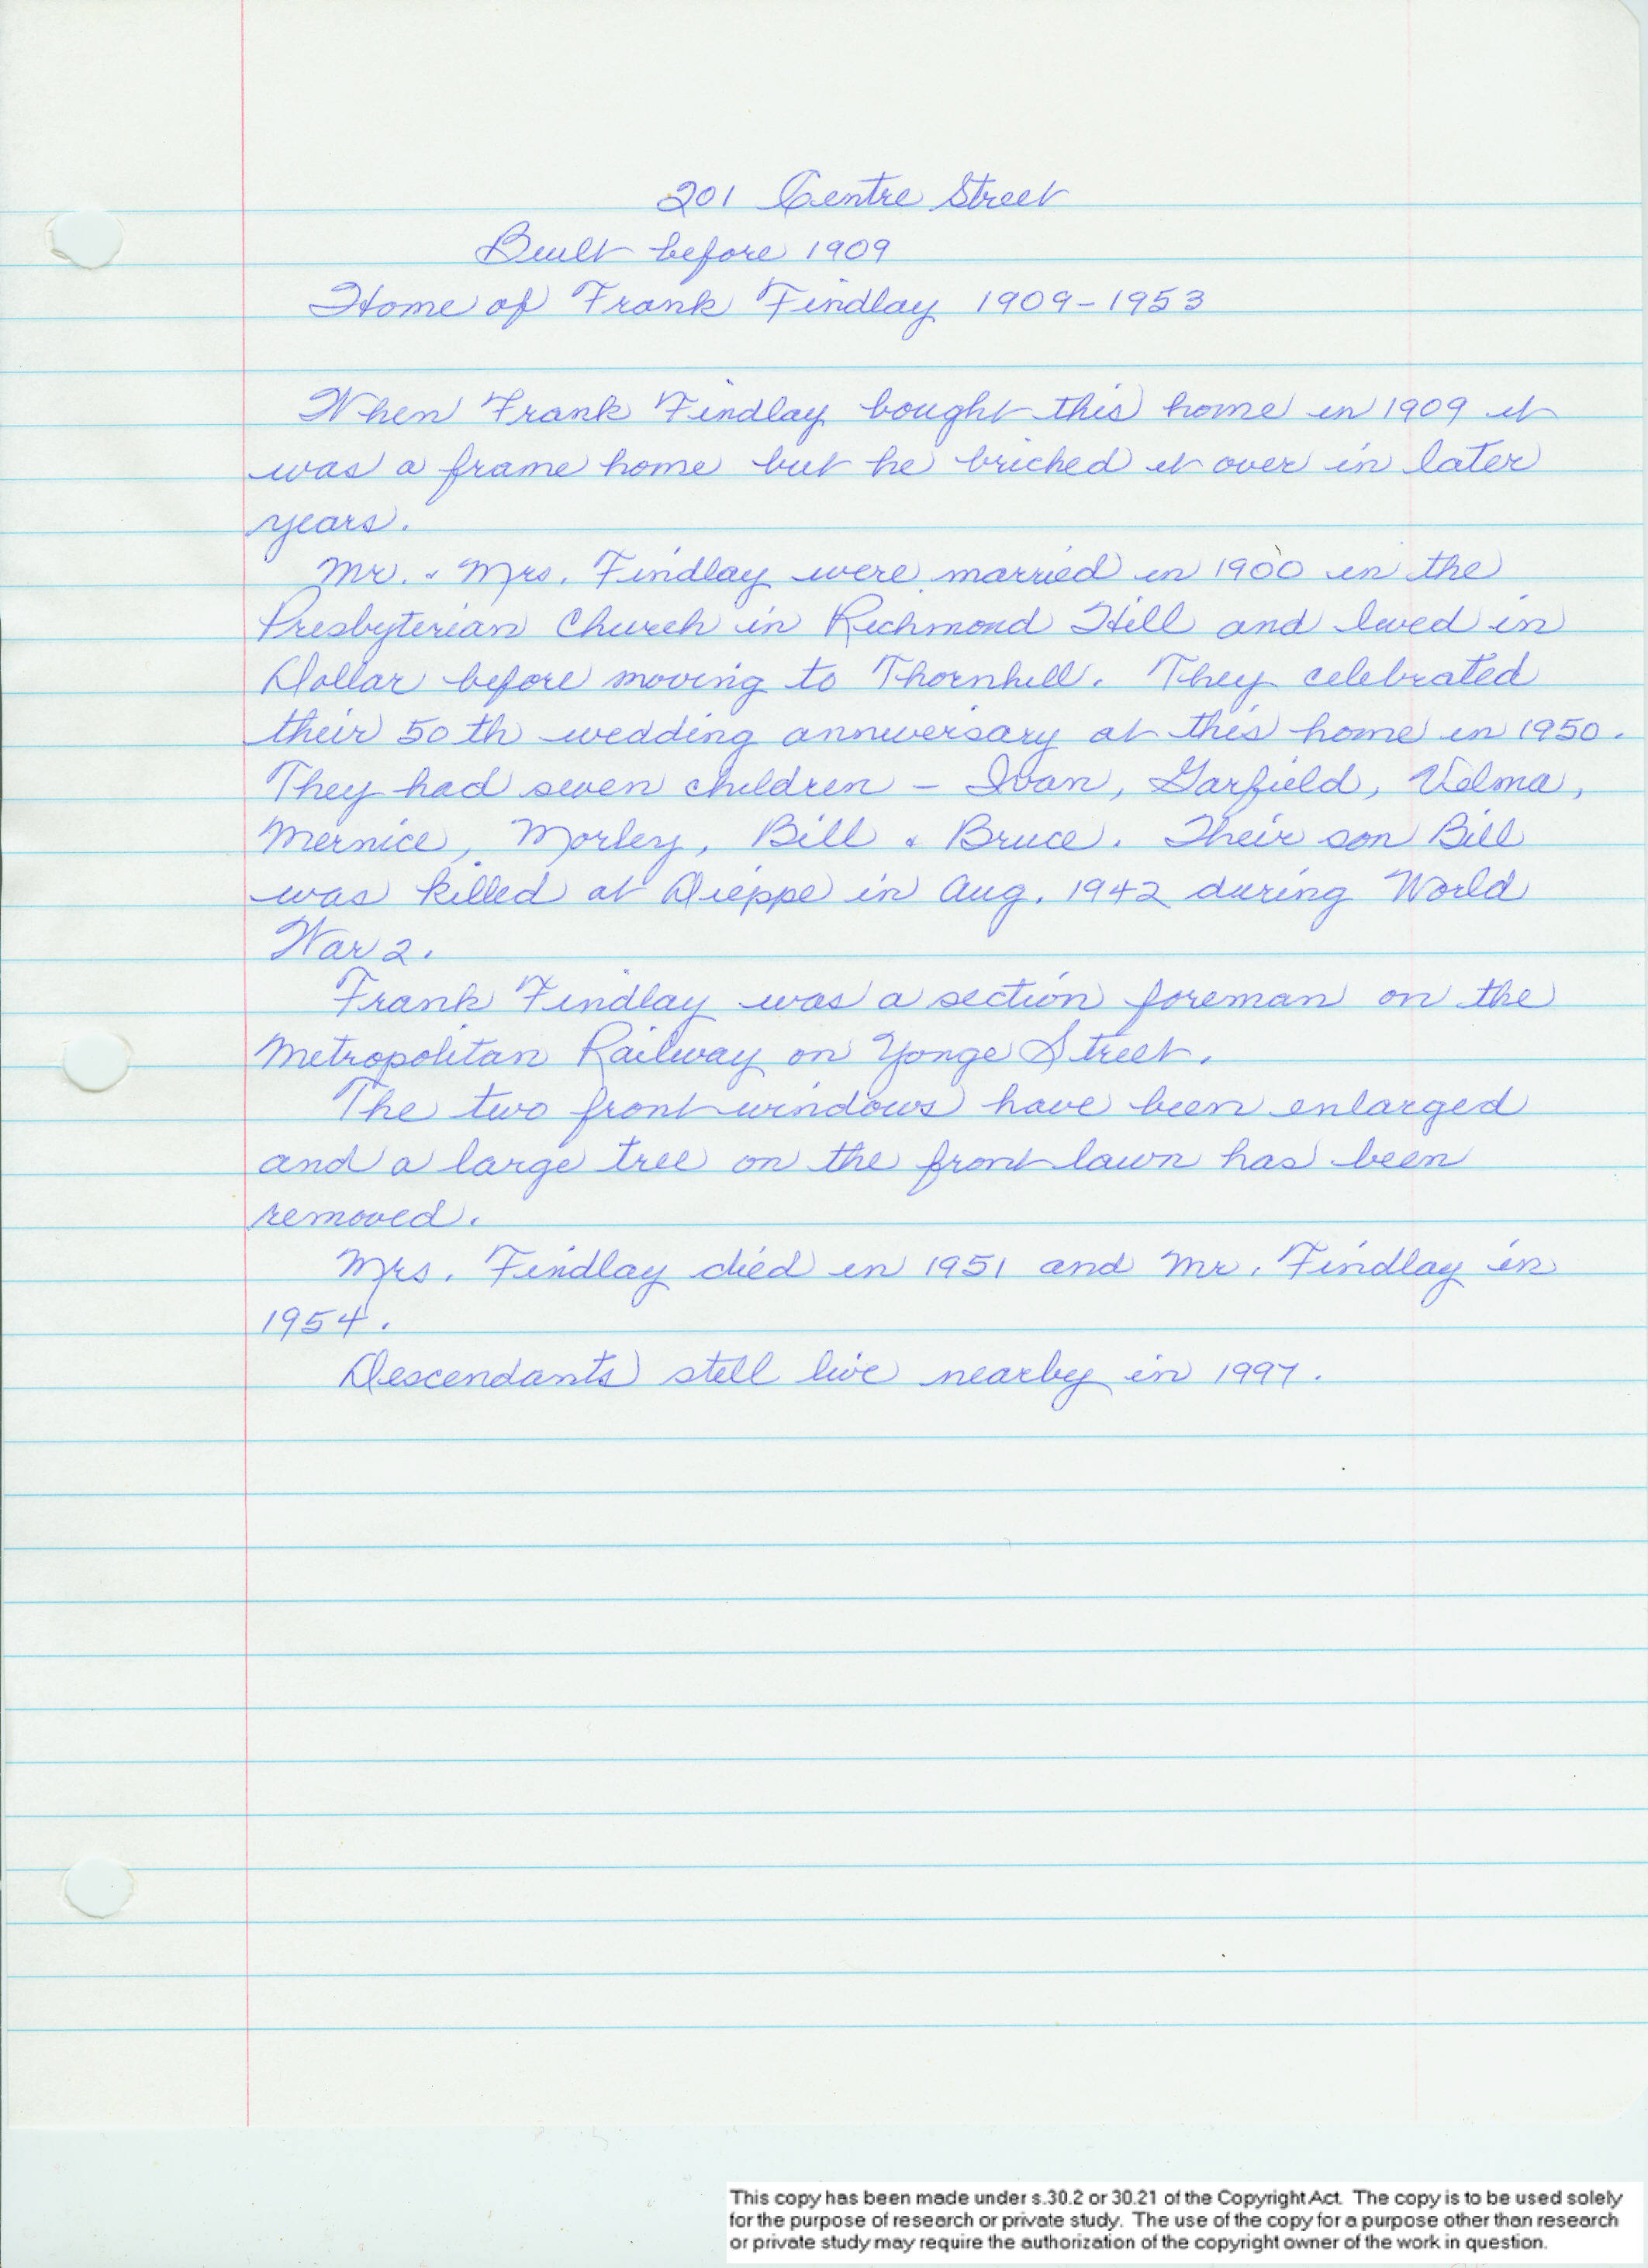 201 Centre Street
Built before 1909
Home of Frank Findlay 1909-1953
When Frank Findlay bought this home in 1909 it
was a frame home but he bricked it over in later
years.
Mr. & Mrs. Findlay were married in 1900 in the
Presbyterian Church in Richmond Hill and lived in
Dollar before moving to Thornhill. They celebrated
their 50th wedding anniversary at this home in 1950.
They had seven children - Ivan, Garfield, Velma,
Mernice, Morley, Bill & Bruce. Their son Bill
was killed at Dieppe in Aug. 1942 during World
War 2.
Frank Findlay was a section foreman on the
Metropolitan Railway on Yonge Street.
The two front windows have been enlarged
and a large tree on the front lawn has been
removed.
Mrs. Findlay died in 1951 and Mr. Findlay in
1954.
Descendants still live nearby in 1997.
This copy has been made under s.30.2 or 30.21 of the Copyright Act. The copy is to be used solely
for the purpose of research or private study. The use of the copy for a purpose other than research
or private study may require the authorization of the copyright owner of the work in question.